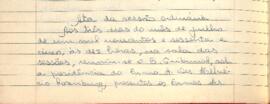 Ata da sessão ordinária
Aos três dias do mês de junho
de um mil novecentos e sessenta e
cinco, às dez horas, na sala das
sessões, reuniu-se o E. Tribunal, sob
a presidência do Exmo.
presentes os Exmos. Srs.